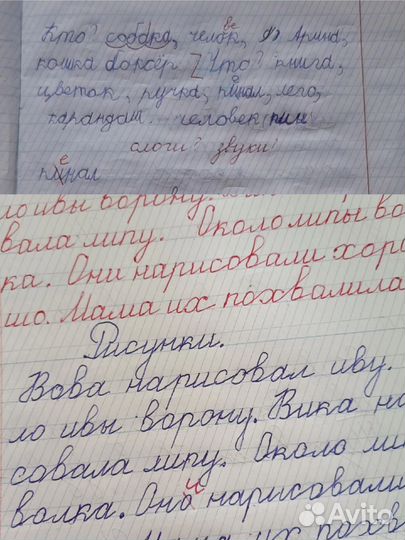 Кто? собака, челок, ве Я Арина,
кошка боксёр Z Что? книга,
цветок, ручка, пинал, лего,
карандаш. человек
слоги? звуки?
пенал
ло ивы ворону.
вала липу. Около липы во
ка. Они нарисовали хоро
шо. Мама их похвалила
Рисунки.
Вова нарисовал иву.
ло ивы ворону. Вика на
совала липу. Около ли
волка. Они нарисовали
Мама их похв
Avito